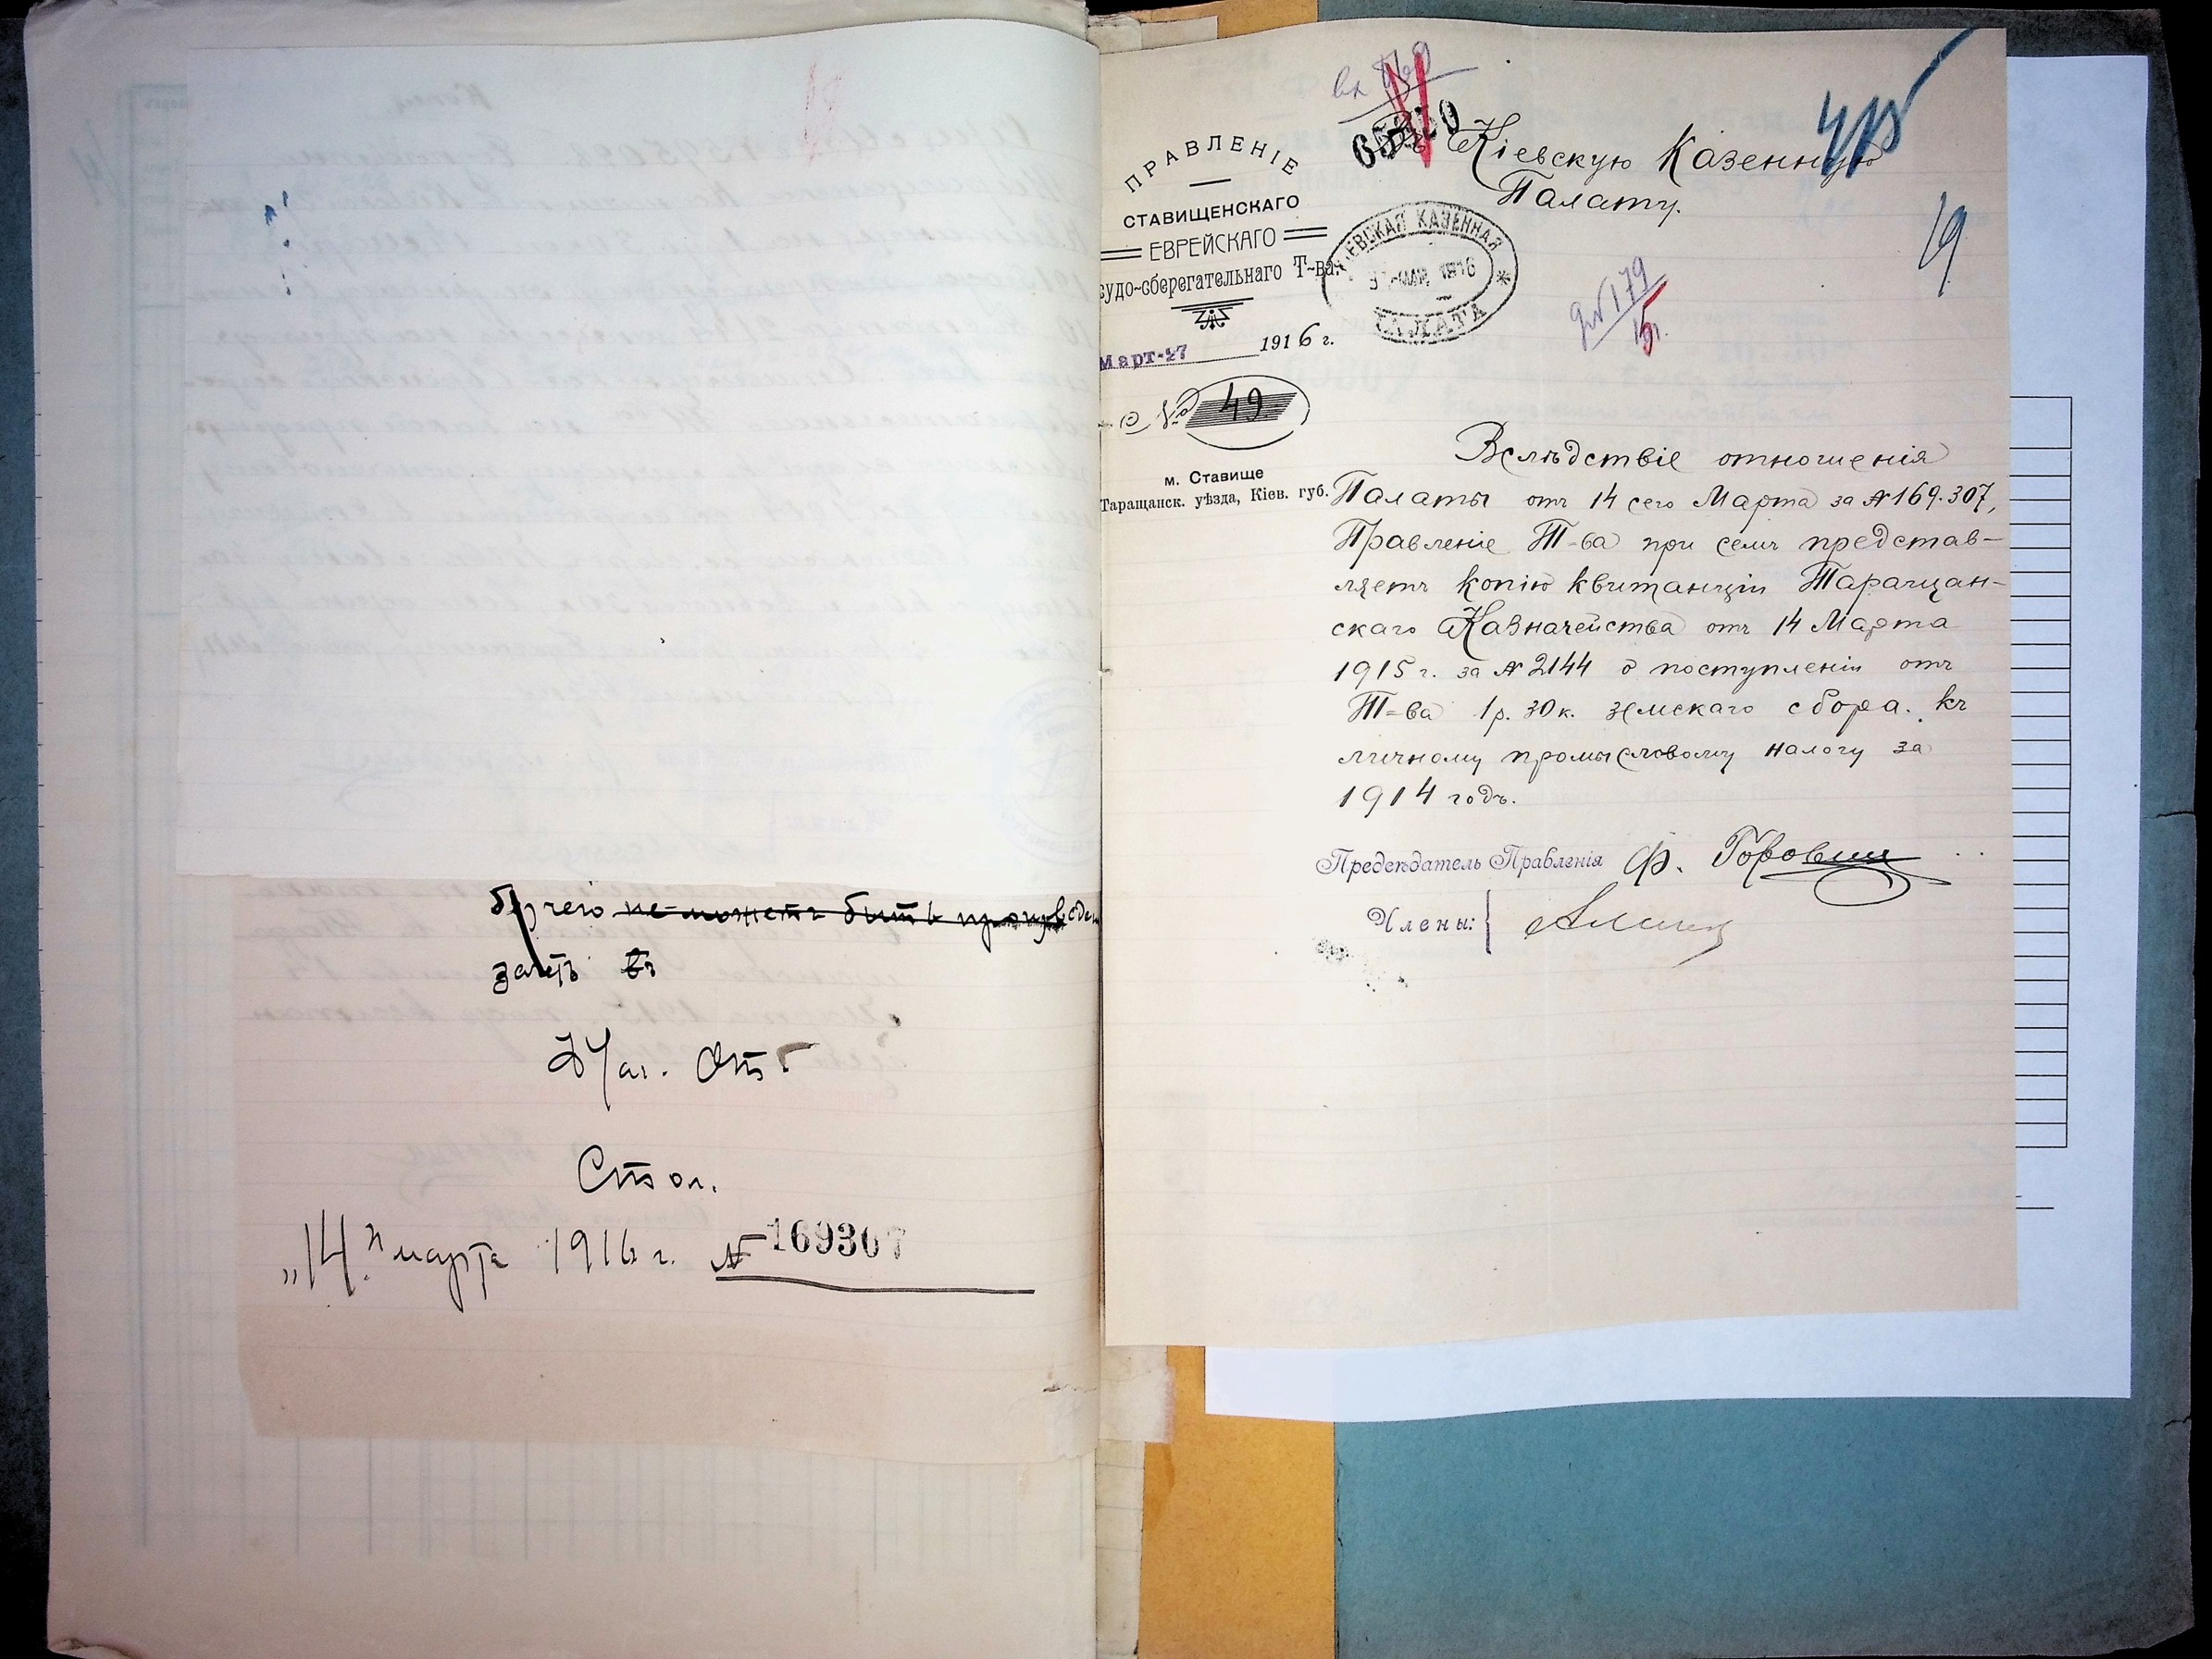 бр чего не можетъ быть произведен
зачетъ въ
Нач. Отд
Стол.
„14" марта 1916 г. № 169307
вх
Въ Кіевскую Казенную
Палату.
ПРАВЛЕНІЕ
СТАВИЩЕНСКАГО
ЕВРЕЙСКАГО
судо-сберегательнаго Т-ва.
Март-27 1916 г.
№ 49.
м. Ставище
Таращанск. уѣзда, Кіев. губ.
КІЕВСКАЯ КАЗЕННАЯ
МАР 1916
ПАЛАТА
19
№ 179
15 г.
Вслѣдствіе отношенія
Палаты отъ 14 сего Марта за № 169.307,
Правленіе Т-ва при семъ представ-
ляетъ копію квитанціи Таращан-
скаго Казначейства отъ 14 Марта
1915 г. за № 2144 о поступленіи отъ
Т-ва 1 р. 30 к. земскаго сбора. къ
личному промысловому налогу за
1914 годъ.
Предсѣдатель Правленія Ф. Горовиц
Члены: